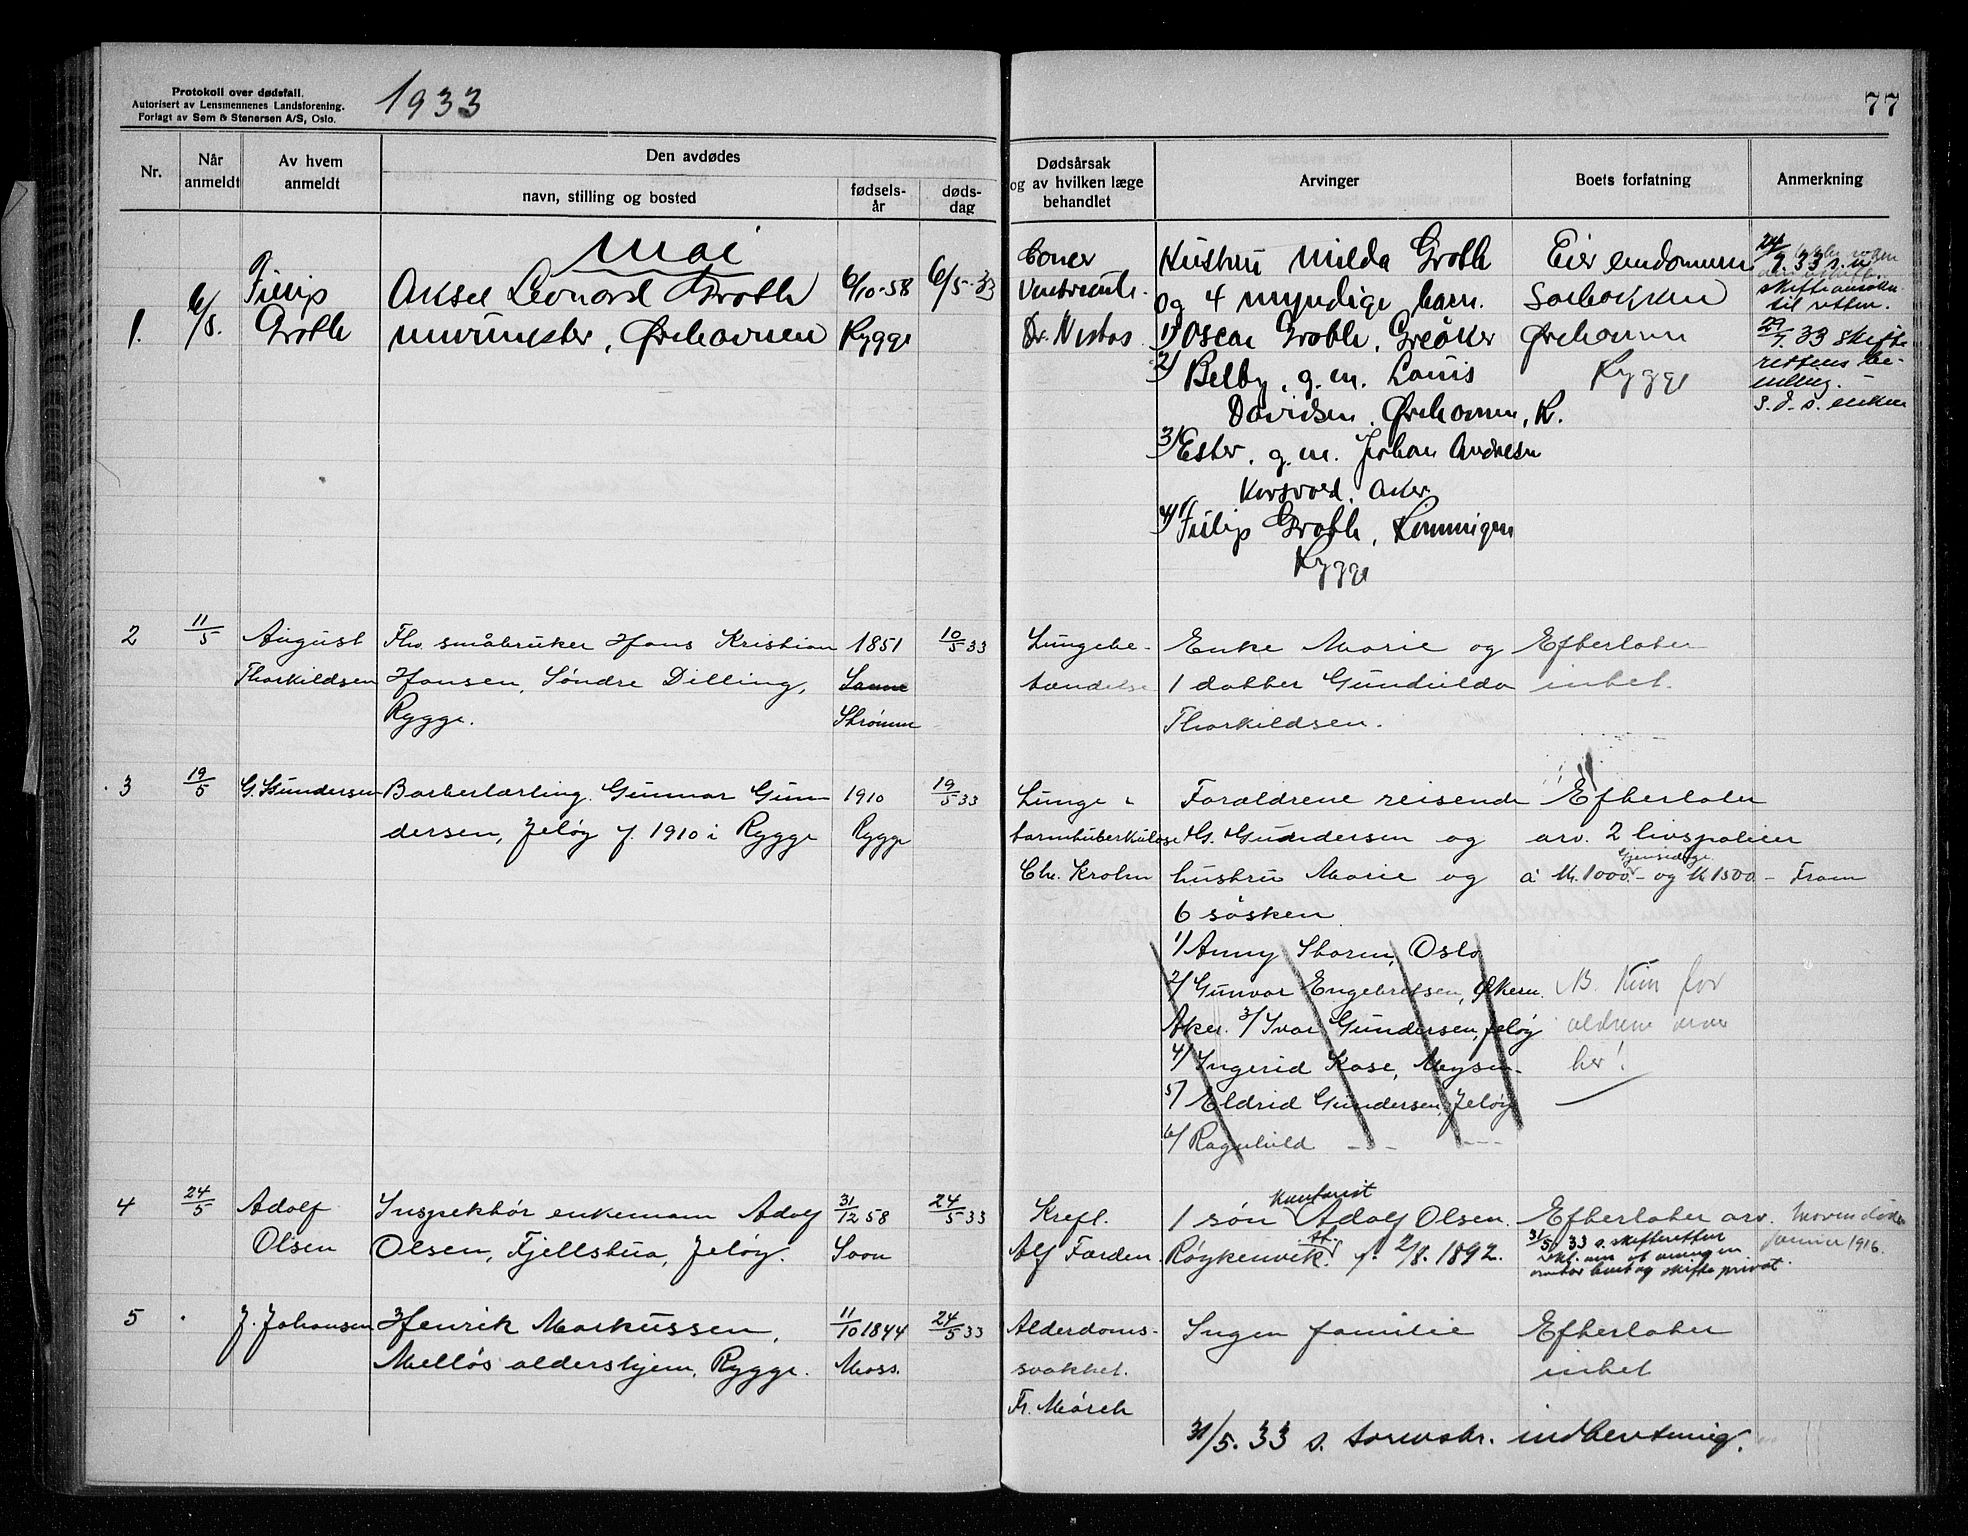 Protokoll over dødsfall.
Autorisert av Lensmennenes Landsforening.
Forlagt av Sem & Stenersen A/S, Oslo.
1933
77
Nr.
Når anmeldt
Av hvem anmeldt
Den avdødes
navn, stilling og bosted
fødsels-år
døds-dag
Dødsårsak og av hvilken læge behandlet
Arvinger
Boets forfatning
Anmerkning
Mai
1.
6/5.
Filip
Groth
Aksel Leonard Groth
murmester, Ørehavnen
6/10-58
Rygge
6/5-33
Cancer
Ventricule.
Hustru Milda Groth
og 4 myndige barn.
1) Oscar Groth, Greåker
2/ Belby, g.m. Louis
Davidsen, Ørehavnen, R.
3/ Ester, g.m. Johan Andresen
Korsvold, Aker.
4/ Filip Groth, Rygge
Eier eiendommen
Solbakken
Ørehavnen
Rygge
til retten.
29/7 33 Skifte
2
11/5
August
Thorkildsen
Fhv. småbruker Hans Kristian
Hansen, Søndre Dilling,
Rygge.
1851
Sanne
Strømm
10/5 33
Lungebe-
tændelse
Enke Marie og
1 datter Gunhilda
Thorkildsen.
Efterlater
intet.
3
19/5
G. Gundersen
Barberlærling Gunnar Gun
dersen, Jeløy f. 1910 i Rygge
1910
Rygge
19/5 33
Lunge-
tarmtuberkulose
Chr. Krohn
Forældrene reisende
G. Gundersen og
hustru Marie og
6 søsken
1/ Anny Storm, Oslo
2/ Gunvor Engebretsen, Økern.
Aker. 3/ Ivar Gundersen, Jeløy
4/ Ingerid Kase, Mysen.
5/ Eldrid Gundersen, Jeløy
6/ Ragnhild -"- -"-
Efterlater
arv. 2 livspoliser
Gjensidige
à kr. 1000.- og kr 1500.- Fram
NB. Kun for
ældrene arver
her!
4
24/5
Adolf
Olsen
Inspektør enkemann Adolf
Olsen, Fjellstua, Jeløy.
31/12 58
Soon
24/5 33
Kreft.
Alf Færden
Kontorist
1 søn Adolf Olsen.
Røykenvik st. f. 2/8. 1892.
Efterlater arv.
31/5 33 s. skifteretten
erkl. om at arvingen
overtar boet og skifte privat.
Moren døde
januar 1916.
5
J. Johansen
Henrik Markussen,
Melløs aldershjem, Rygge.
11/10 1844
Moss.
24/5 33
Alderdoms-
svakhet.
Fr. Mørch
Ingen familie
Efterlater
intet
31/5. 33 s. innberetning.